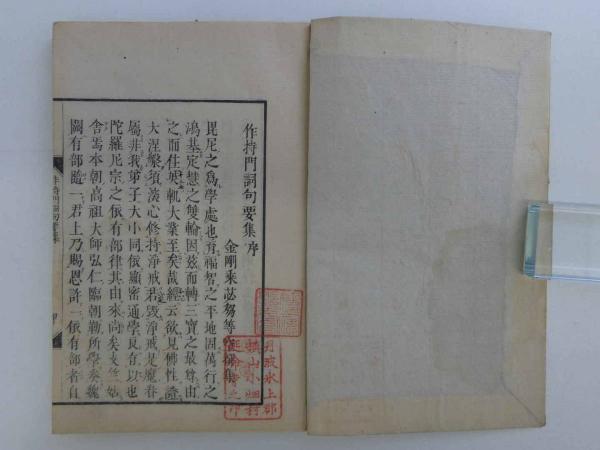 作持門詞句要集序
金剛乘苾芻等
毘尼之為學處也育福智之平地固萬行之
鴻基定慧之雙輪因茲而轉三寶之最尊由
之而住妙軌大業至矣哉經云欲見佛性證
大涅槃須深心修持淨戒若毀淨戒是魔眷
屬非我弟子大小同依顯密通學良有以也
陀羅尼宗之依有部律其由來尚矣
舍焉本朝高祖大師弘仁臨朝勒所學矣魏
闕有部隨一君上乃賜恩許一依有部者自
丹波氷上郡